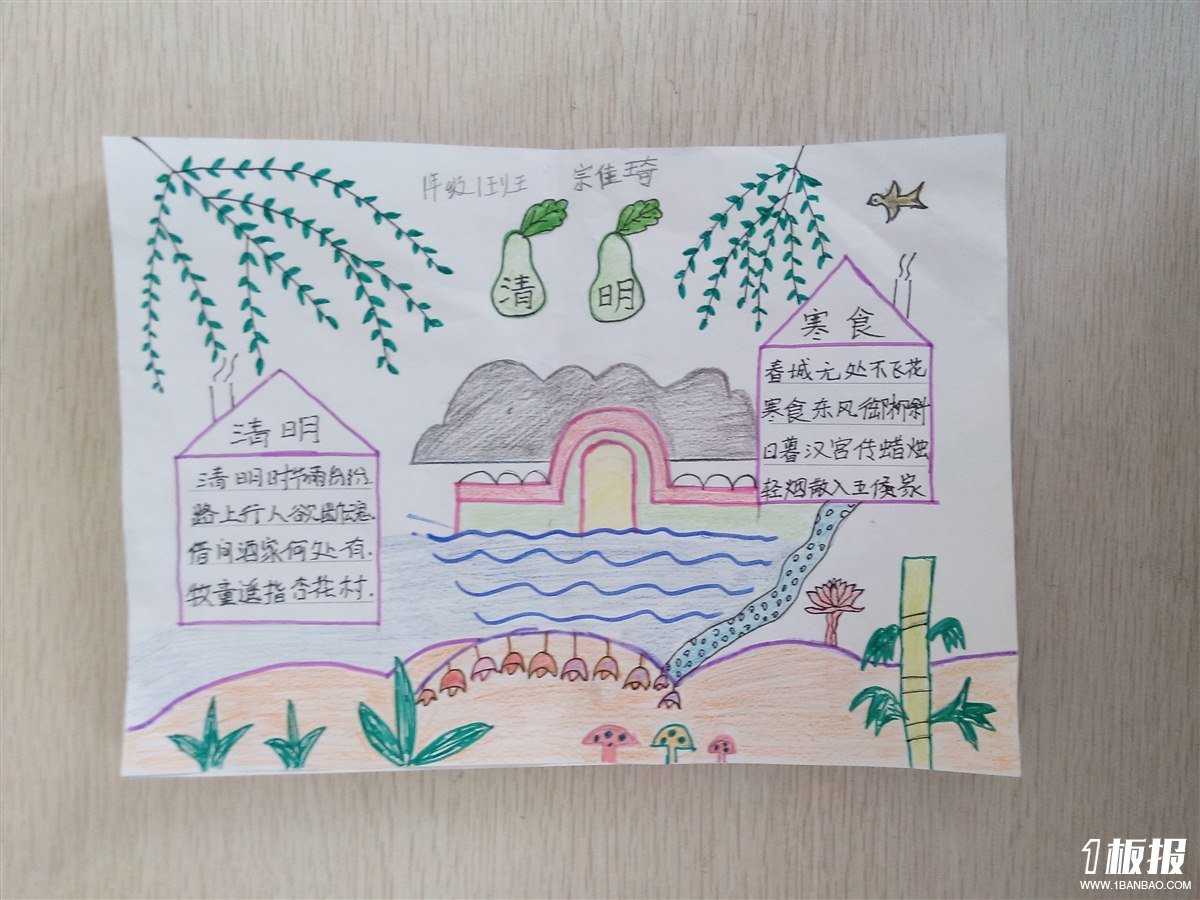 1年级1班 宗佳琦
清明
寒食
春城无处不飞花
寒食东风御柳斜
日暮汉宫传蜡烛
轻烟散入五侯家
清明
清明时节雨纷纷.
路上行人欲断魂.
借问酒家何处有.
牧童遥指杏花村.
1板报
WWW.1BANBAO.COM